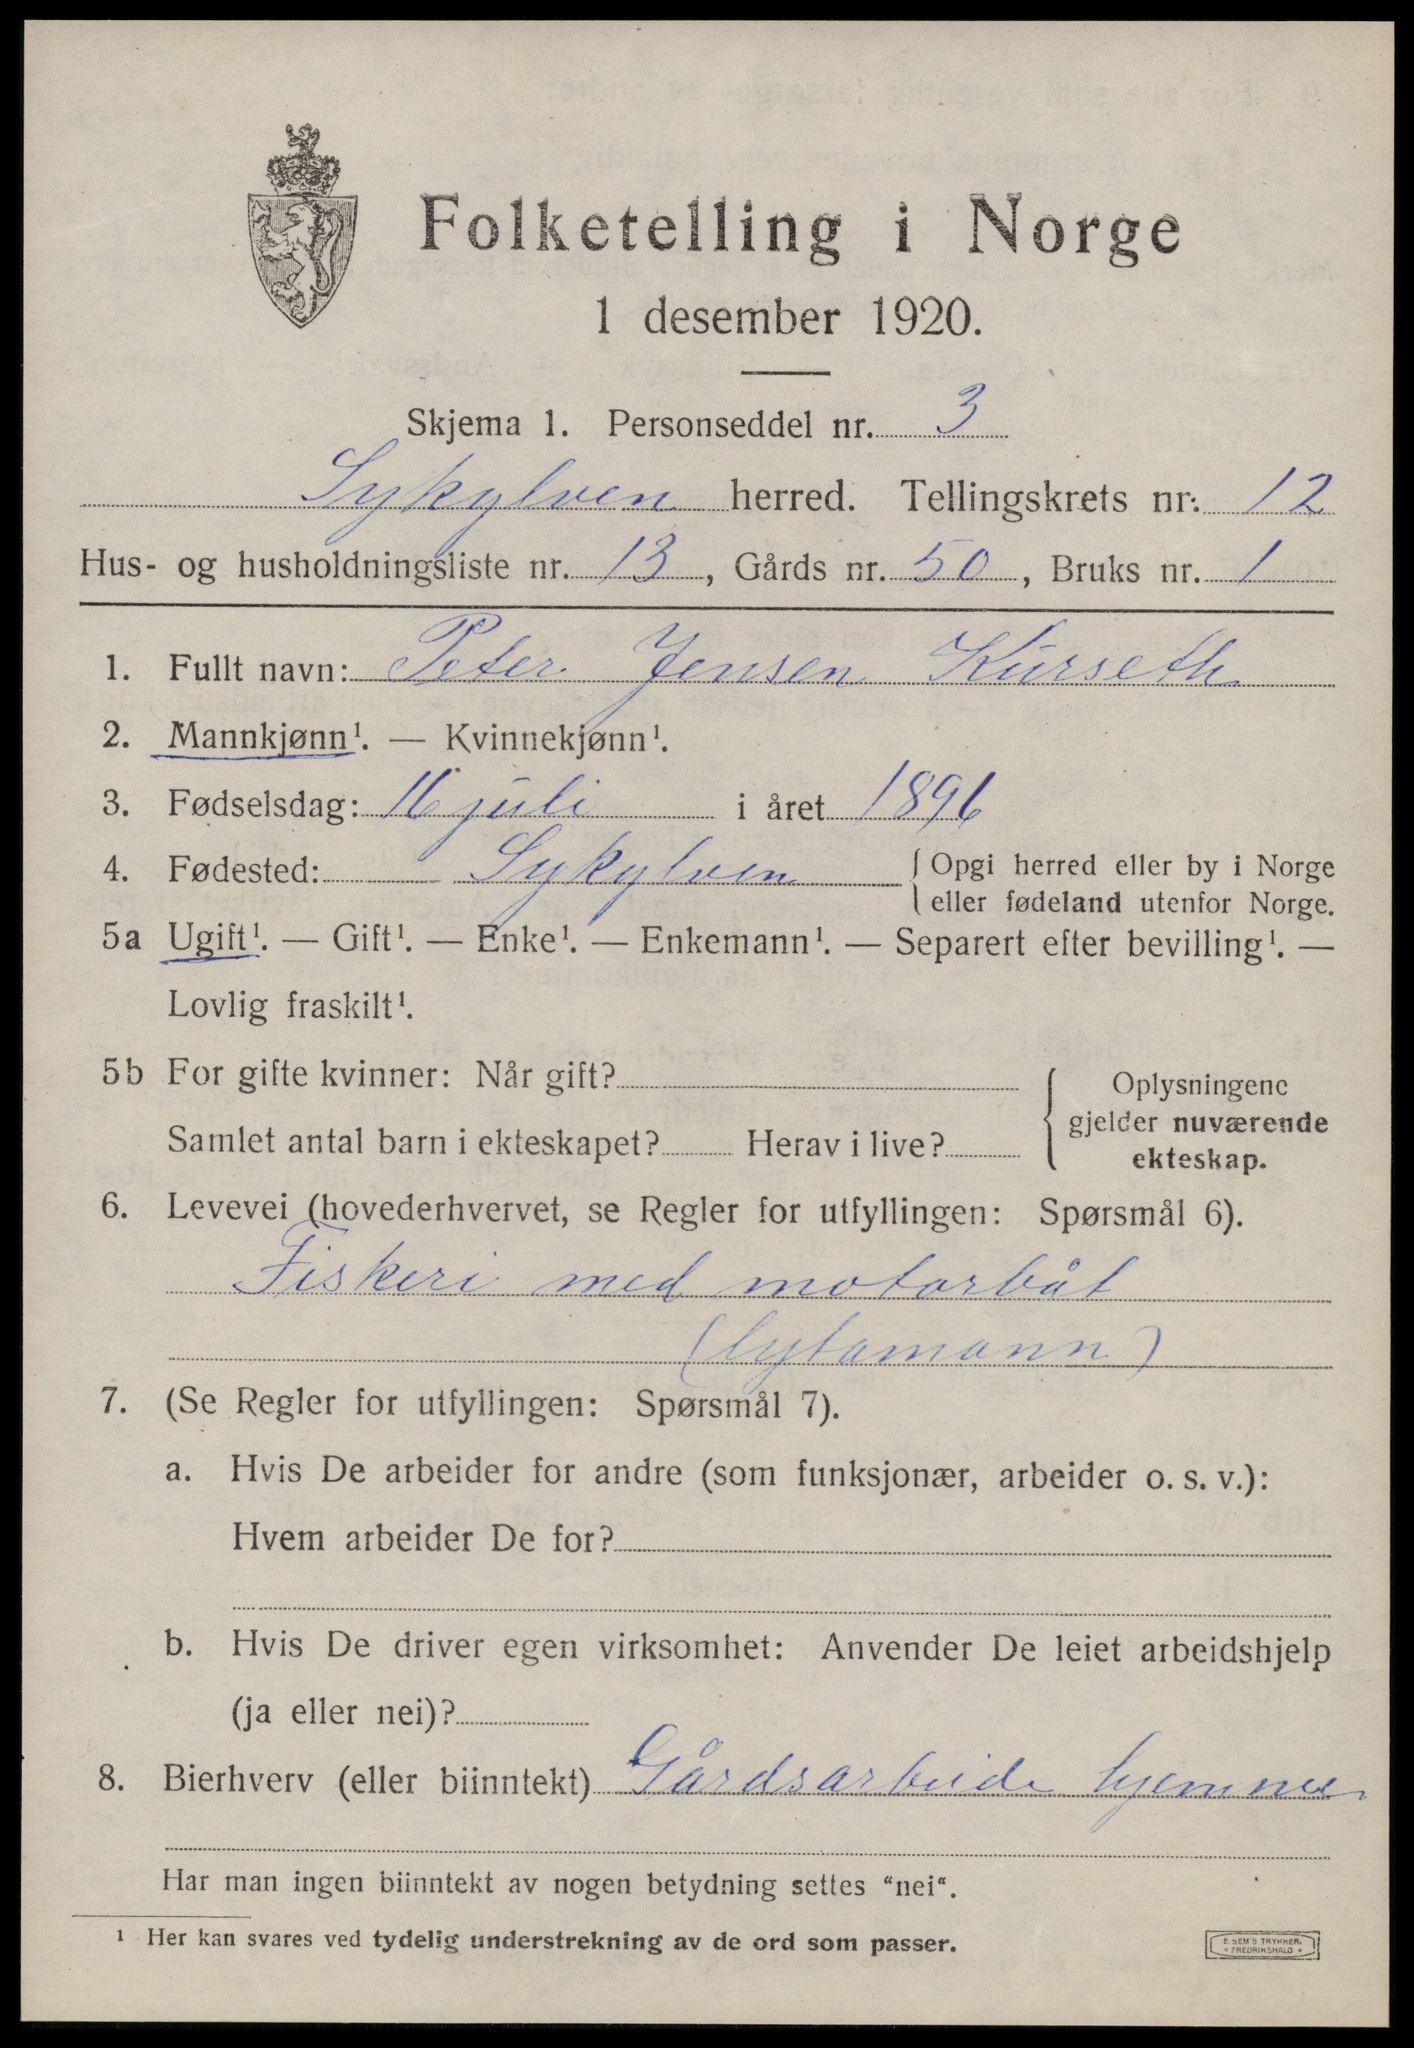 Folketelling i Norge
1 desember 1920.
Skjema 1. Personseddel nr. 3
Sykylven herred. Tellingskrets nr. 12
Hus- og husholdningsliste nr. 13, Gårds nr. 50, Bruks nr. 1
1. Fullt navn: Peter Jensen Kurseth
2. Mannkjønn¹. — Kvinnekjønn¹.
3. Fødselsdag: 16 juli i året 1896
4. Fødested: Sykylven { Opgi herred eller by i Norge
eller fødeland utenfor Norge.
5a Ugift¹. — Gift¹. — Enke¹. — Enkemann¹. — Separert efter bevilling¹. —
Lovlig fraskilt¹.
5b For gifte kvinner: Når gift?
Samlet antal barn i ekteskapet? Herav i live?
Oplysningene
gjelder nuværende
ekteskap.
6. Levevei (hovederhvervet, se Regler for utfyllingen: Spørsmål 6).
Fiskeri med motorbåt
7. (Se Regler for utfyllingen: Spørsmål 7).
a. Hvis De arbeider for andre (som funksjonær, arbeider o. s. v.):
Hvem arbeider De for?
b. Hvis De driver egen virksomhet: Anvender De leiet arbeidshjelp
(ja eller nei)?
8. Bierhverv (eller biinntekt) Gårdsarbeide hjemme
Har man ingen biinntekt av nogen betydning settes "nei".
¹ Her kan svares ved tydelig understrekning av de ord som passer.
E. SEM'S TRYKKERI
FREDRIKSHALD